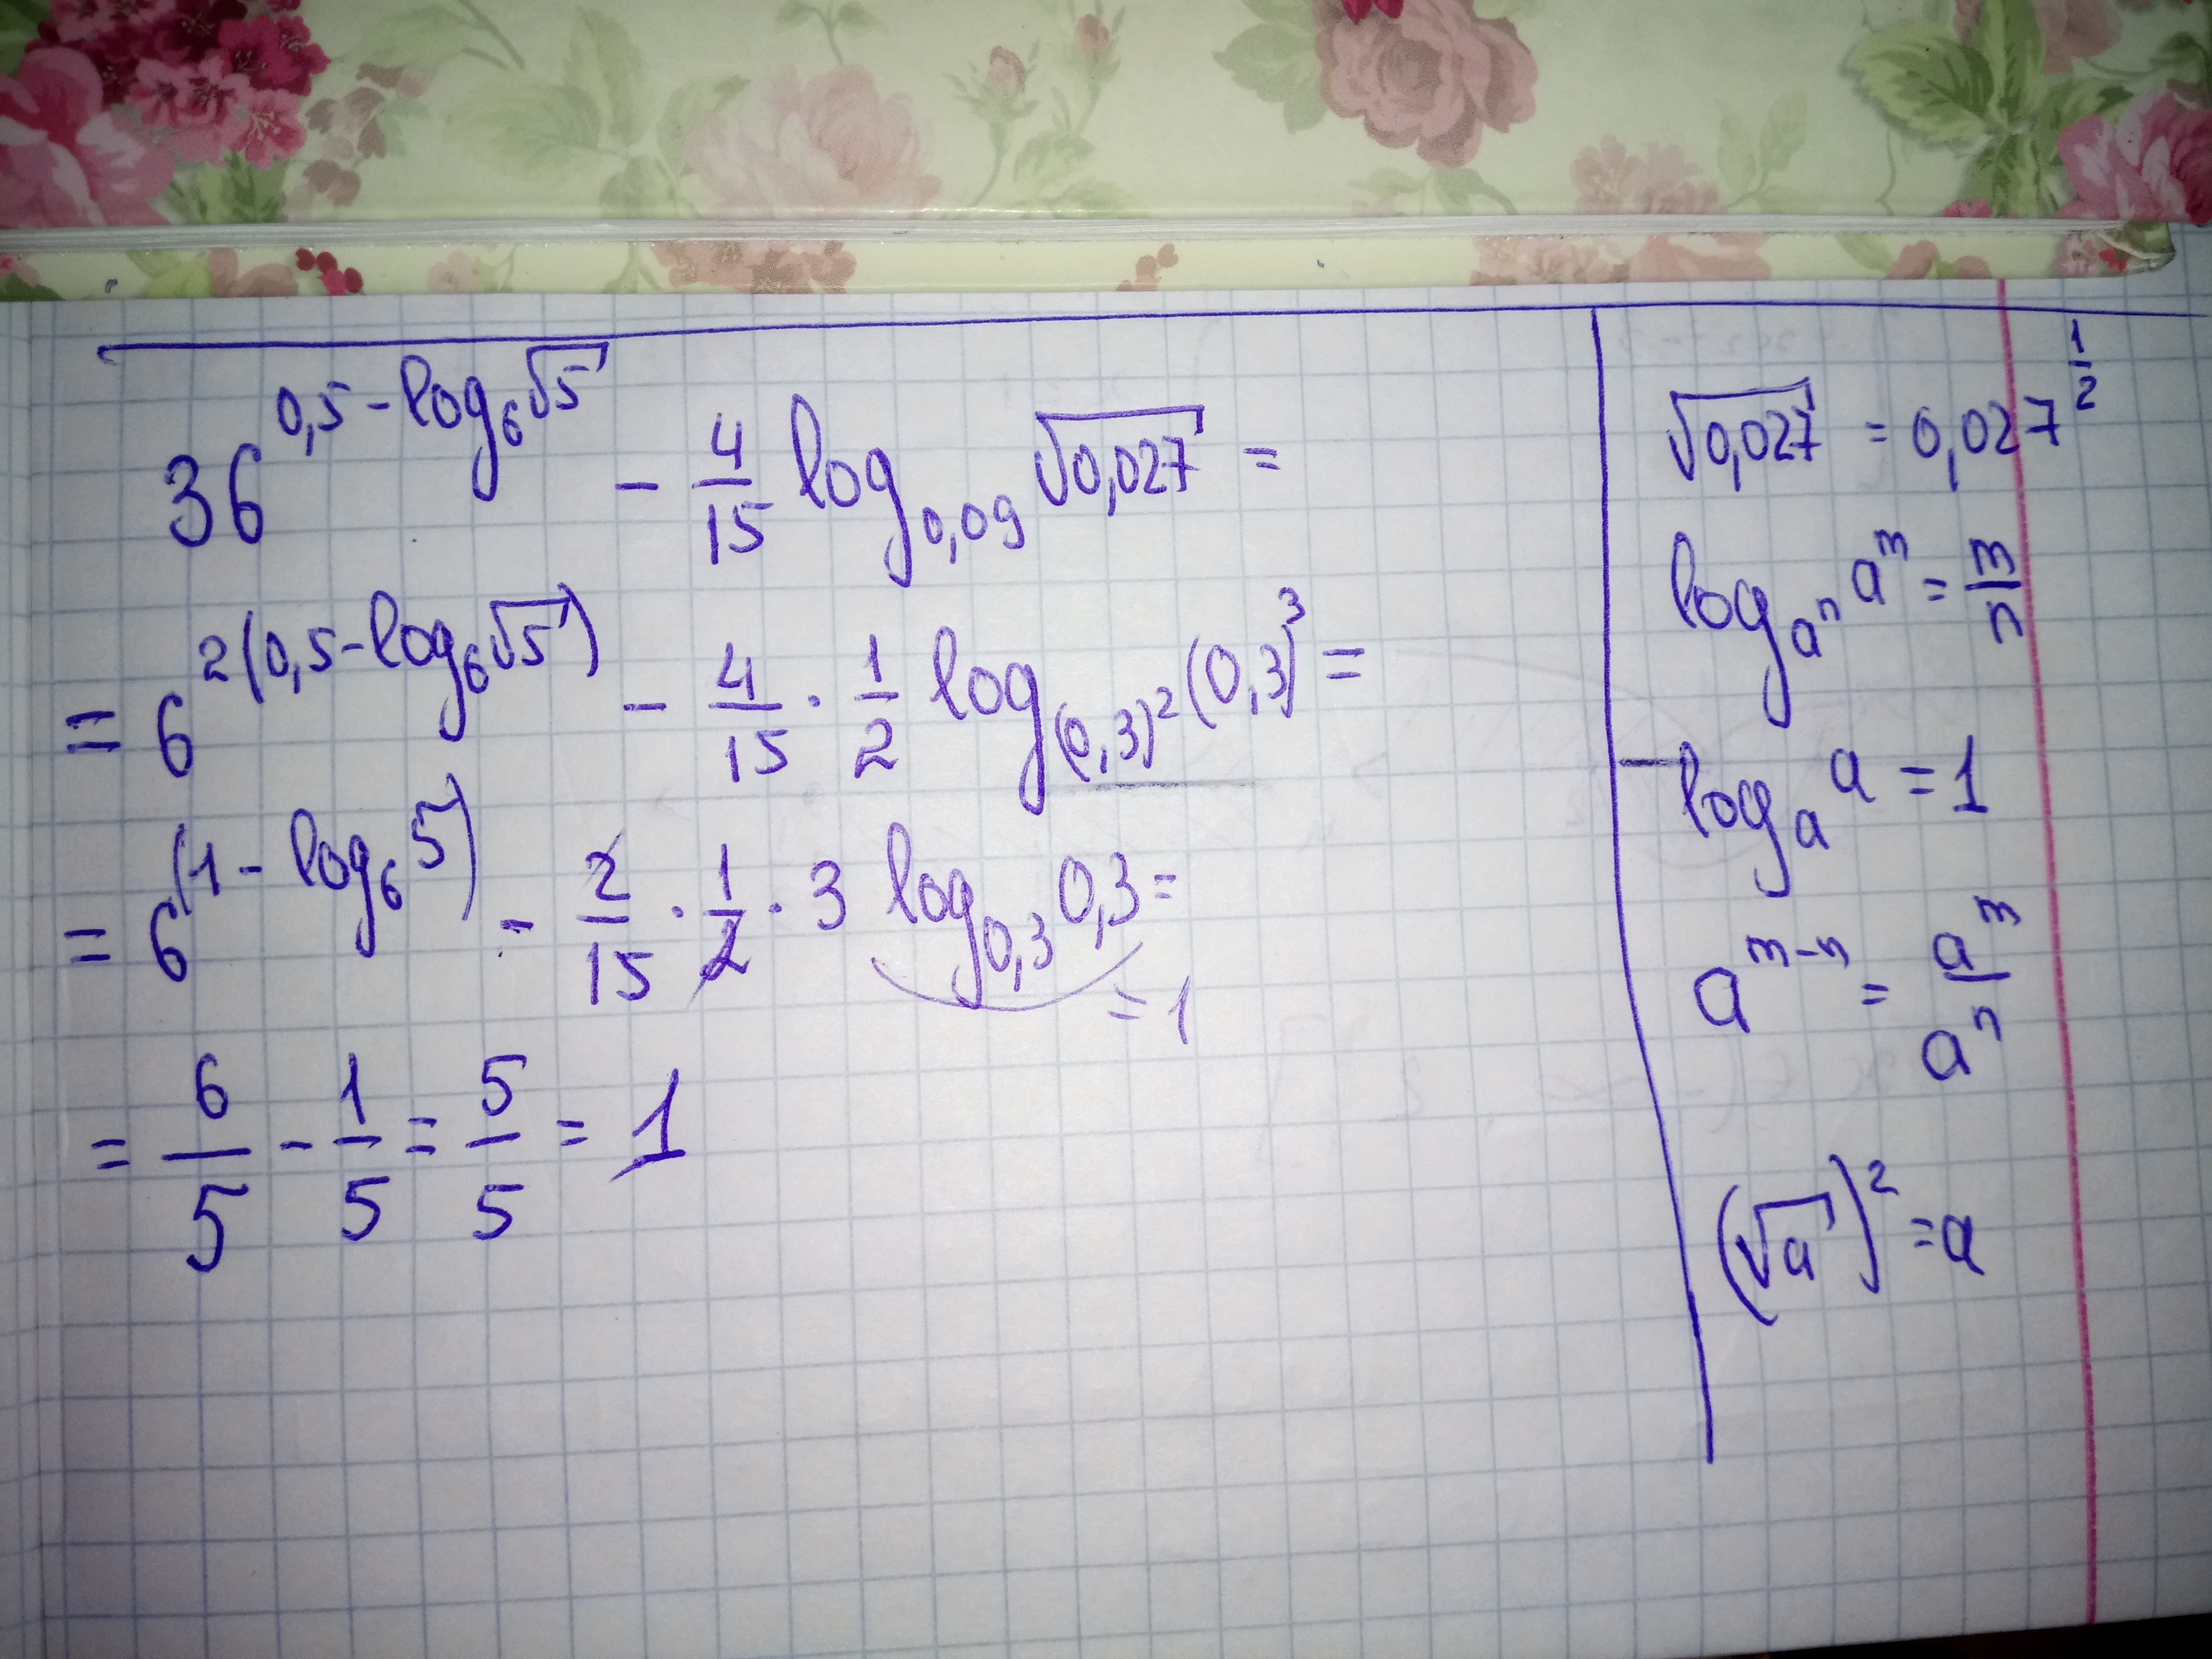 36^(0,5-log_6 √5) - 4/15 log_0,09 √0,027 =
= 6^(2(0,5-log_6 √5)) - 4/15 · 1/2 log_(0,3)^2 (0,3)^3 =
= 6^(1-log_6 5) - 2/15 · 1/2 · 3 log_0,3 0,3 =
= 1
= 6/5 - 1/5 = 5/5 = 1
√0,027 = 0,027^(1/2)
log_a^n a^m = m/n
log_a a = 1
a^(m-n) = a^m/a^n
(√a)^2 = a